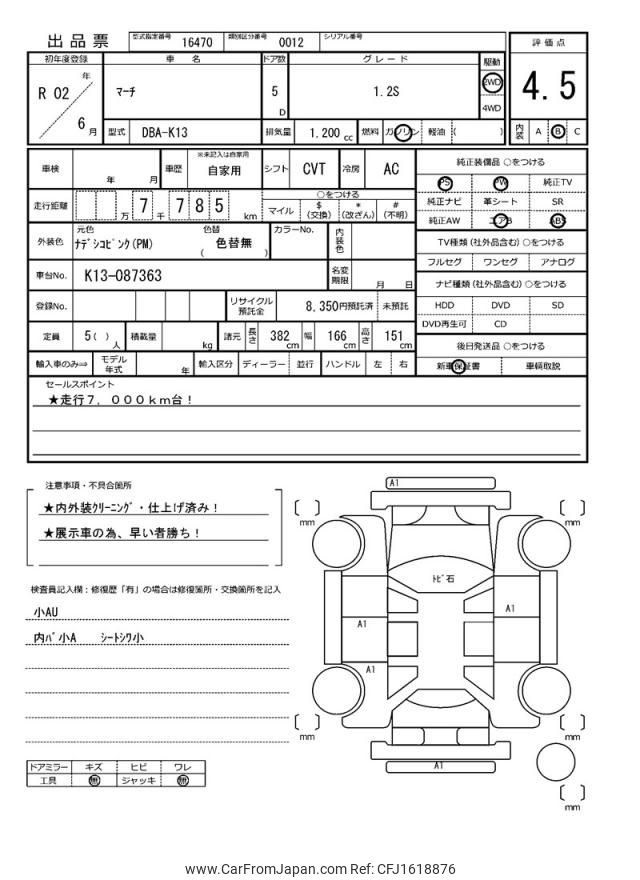 出品票 型式指定番号 16470 類別区分番号 0012 シリアル番号
評価点
4.5
内装 A B C
初年度登録 車名 ドア数 グレード 駆動
R 02 年 6 月 マーチ 5 D 1.2S 2WD 4WD
型式 DBA-K13 排気量 1.200 cc 燃料 ガソリン 軽油 ( )
車検 年 月 車歴 ※未記入は自家用 自家用 シフト CVT 冷房 AC
走行距離 万 7 千 7 8 5 km ○をつける
マイル $ (交換) * (改ざん) # (不明)
外装色 元色 ﾅﾃﾞｼｺﾋﾟﾝｸ(PM) 色替 ( 色替無 ) カラーNo. 内装色
車台No. K13-087363 名変期限 月 日
登録No. リサイクル預託金 8,350円預託済 未預託
定員 5( ) 人 積載量 kg 諸元 長さ 382 cm 幅 166 cm 高さ 151 cm
輸入車のみ⇒ モデル年式 年 輸入区分 ディーラー 並行 ハンドル 左 右
純正装備品 ○をつける
PS PW 純正TV
純正ナビ 革シート SR
純正AW エアB ABS
TV種類(社外品含む)○をつける
フルセグ ワンセグ アナログ
ナビ種類(社外品含む)○をつける
HDD DVD SD
DVD再生可 CD
後日発送品 ○をつける
新車保証書 車輌取説
セールスポイント
★走行7，000km台！
注意事項・不具合箇所
★内外装ｸﾘｰﾆﾝｸﾞ・仕上げ済み！
★展示車の為、早い者勝ち！
検査員記入欄：修復歴「有」の場合は修復箇所・交換箇所を記入
小AU
内ﾊﾞ小A ｼｰﾄｼﾜ小
ドアミラー キズ ヒビ ワレ
工具 無 ジャッキ 無
A1
mm
mm
ﾄﾋﾞ石
A1
A1
A1
mm
mm
A1
mm
www.CarFromJapan.com Ref: CFJ1618876